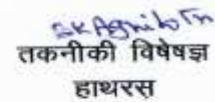 तकनीकी विषेषज्ञ
हाथरस